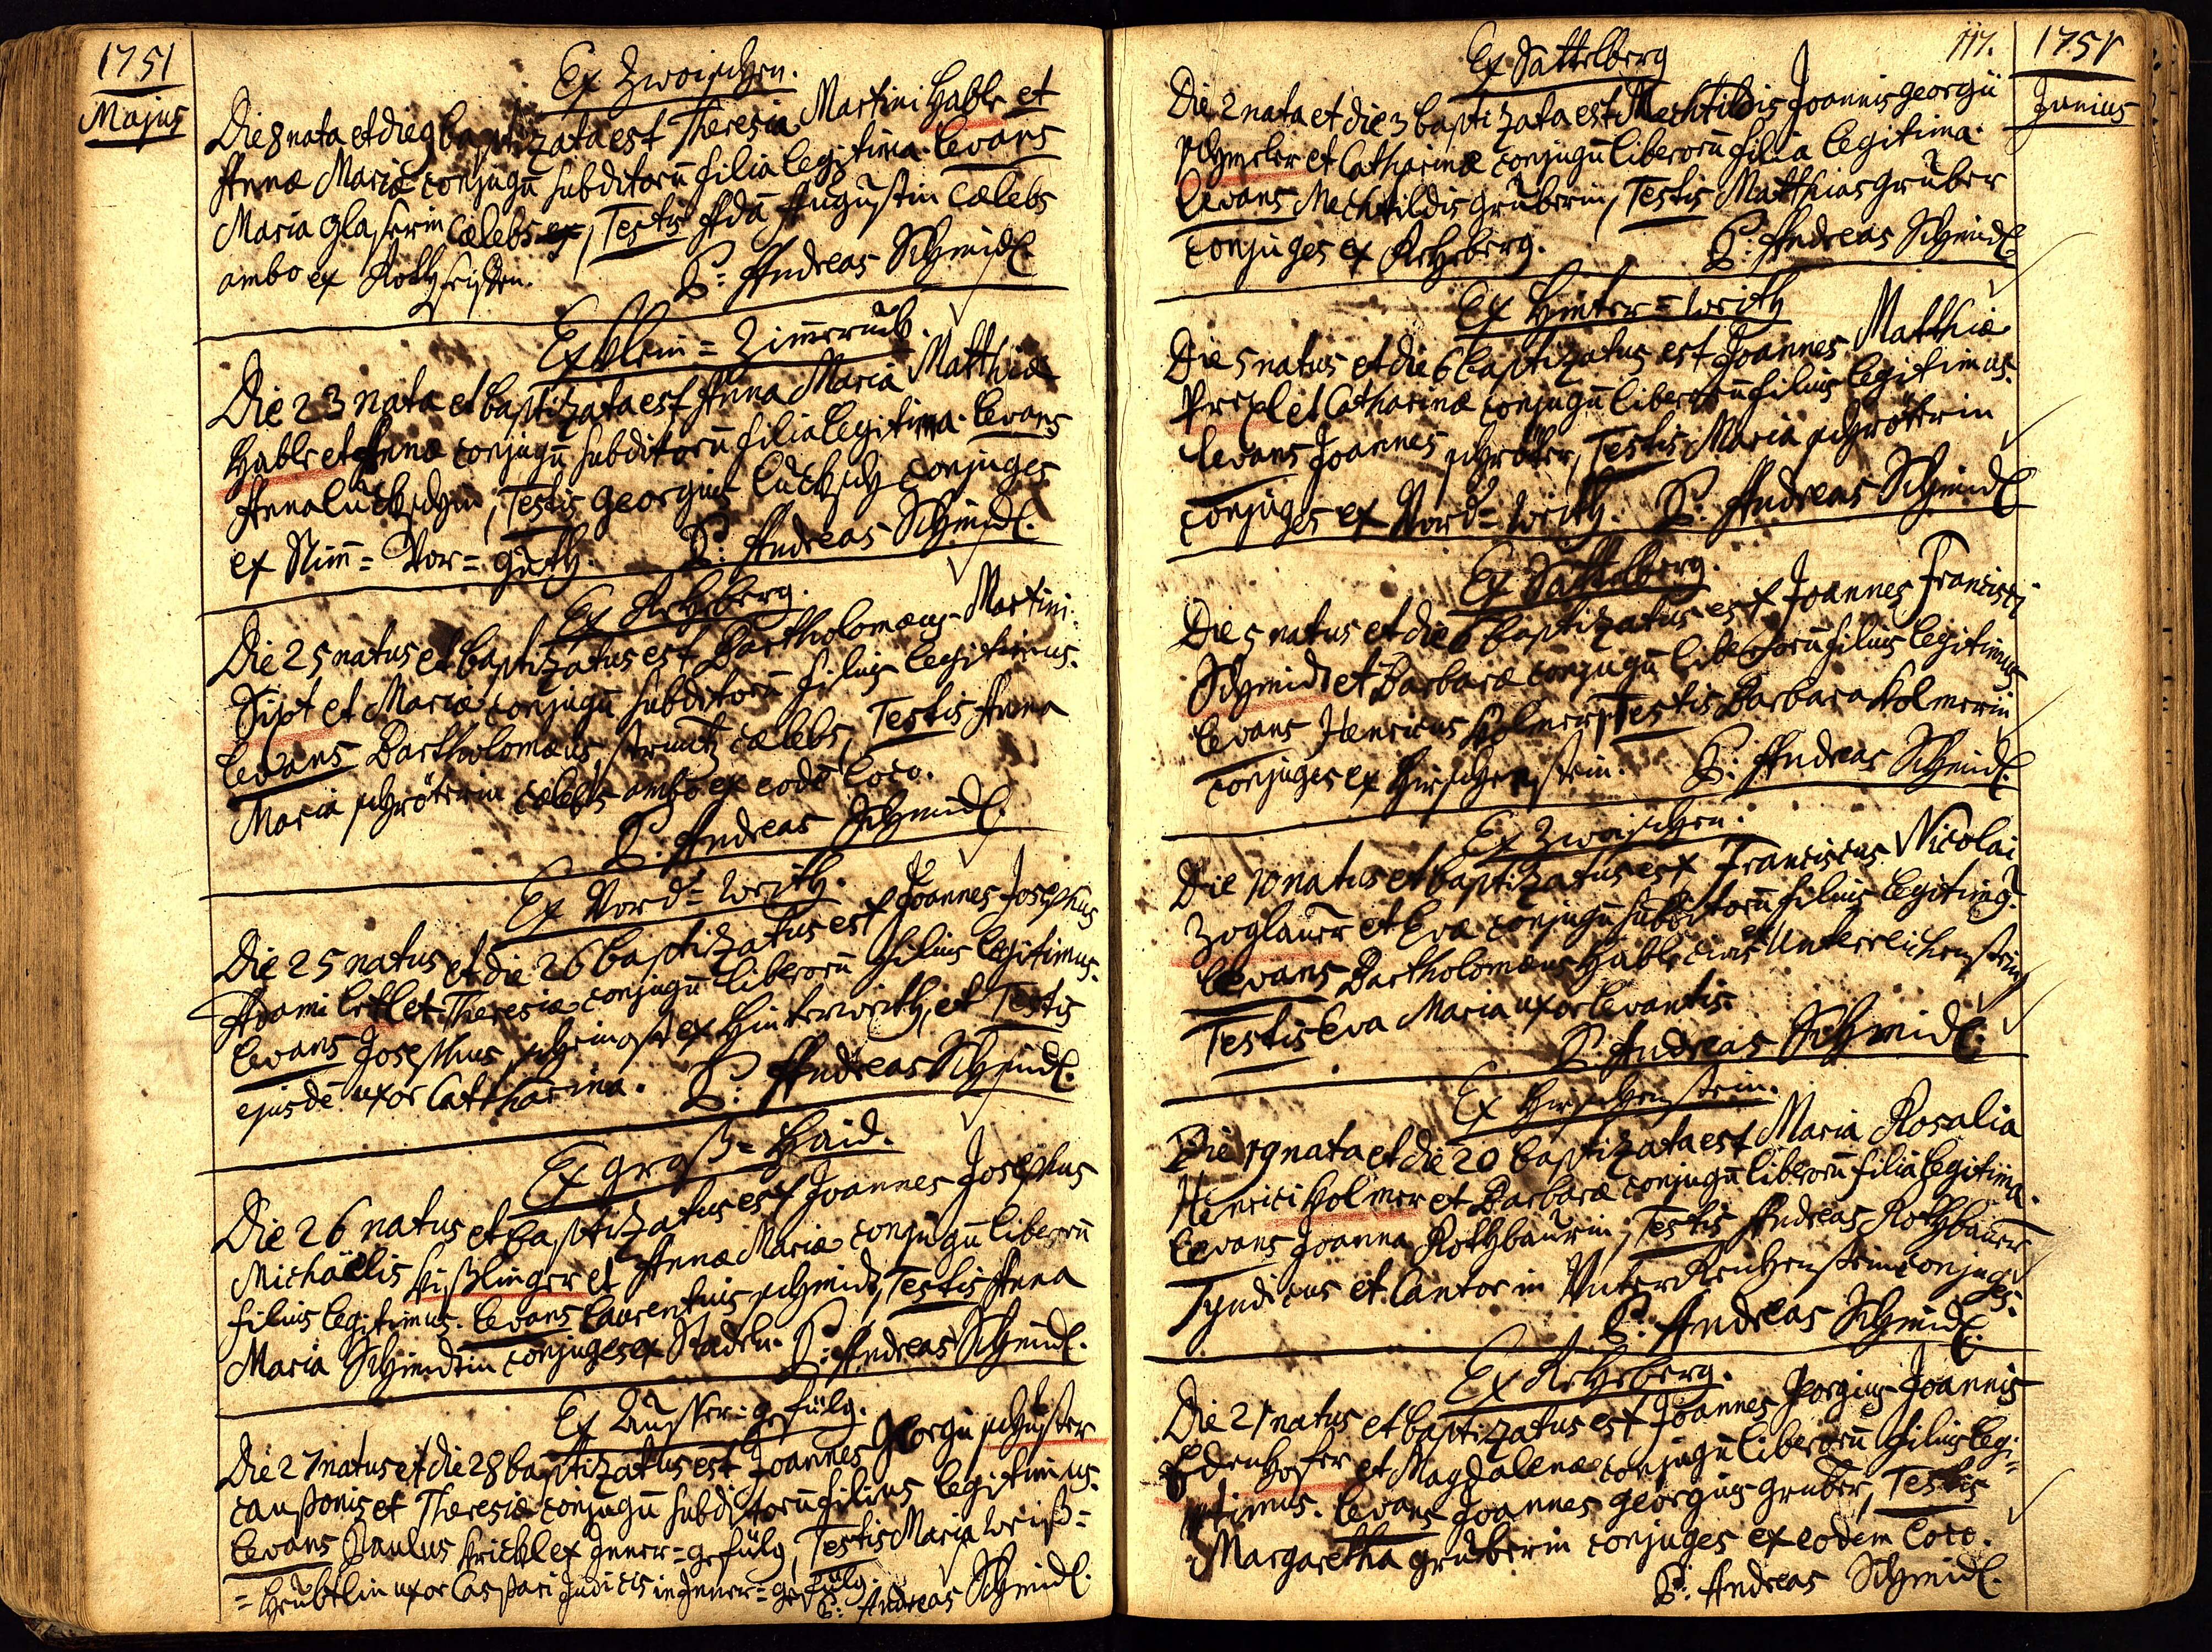 1751
Majus
Ex Zwoischen.
Die 8 nata et die 9 baptizata est Theresia Martini Hable et
Annæ Mariæ conjugū subditorū filia legitima. Levans
Maria Glaserin cælebs, Testis Adā Augustin cælebs
ambo ex
P: Andreas Schmidl.
Ex Klein=Zimerruck.
Die 23 nata et baptizata est Anna Maria Matthiæ
Hable et Annæ conjugū subditorū filia legitima. Levans
Anna, Testis Georgius conjuges
ex Stim=Vor=
P: Andreas Schmidl.
Ex Rehberg.
Die 25 natus et baptizatus est Bartholomæus Martini
Sixt et Mariæ conjugū subditorū filius legitimus.
Levans Bartholomæus cælebs, Testis Anna
Maria schröterin cælebs ambo ex eodē loco.
P: Andreas Schmidl.
Ex Vord=
Die 25 natus et die 26 baptizatus est Joannes Josephus
Adami et Theresiæ conjugū liberorū filius legitimus.
Levans Josephus ex, et Testis
ejusdē uxor Catharina. P: Andreas Schmidl.
Ex Groß=Haid.
Die 26 natus et baptizatus est Joannes Josephus
Michaëlis Kißlinger et Annæ Mariæ conjugū liberorū
filius legitimus. Levans Laurentius schmidt, Testis Anna
Maria Schmidtin conjuges ex Stadln. P: Andreas Schmidl.
Ex Ausser=gefülg.
Die 27 natus et die 28 baptizatus est Joannes Georgii schuster
et Theresiæ conjugū subditorū filius legitimus.
Levans Paulus Krickl ex Inner=gefülg, Testis Maria Weiß=
=Heüblin uxor Caspari Judicis in Inner=gefülg.
P: Andreas Schmidl.
117.
1751
Junius
Ex Sattelberg
Die 2 nata et die 3 baptizata est Mechtildis Joannis Georgii
et Catharinæ conjugū liberorū filia legitima.
Levans Mechtildis Gruberin, Testis Matthias Gruber
conjuges ex Rehberg. P: Andreas Schmidl
Ex Hinter=
Die 5 natus et die 6 baptizatus est Joannes Matthiæ
et Catharinæ conjugū liberorū filius legitimus.
Levans Joannes schröter, Testis Maria schröterin
conjuges ex Vord= P: Andreas Schmidl
Ex Sattelberg.
Die 5 natus et die 6 baptizatus est Joannes Francisci
Schmidt et Barbaræ conjugū liberorū filius legitimus
Levans Henricus Holmer, Testis Barbara Holmerin
conjuges ex Hirschenstein. P: Andreas Schmidl.
Ex Zwoischen.
Die 10 natus et baptizatus est Franciscus Nicolai
Zoglauer et Evæ conjugū subditorū filius legitimg.
Levans Bartholomæus Hable civis ex Unterreichenstein
Testis Eva Maria uxor levantis.
P: Andreas Schmidl.
Ex Hirschenstein.
Die 19 nata et die 20 baptizata est Maria Rosalia
Henrici Holmer et Barbaræ conjugū liberorū filia legitima.
Levans Joanna Rothbaurin, Testis Andreas Rothbauer
Syndicus et Cantor in Unter Reichenstein conjuges.
P: Andreas Schmidl.
Ex Rehberg.
Die 21 natus et baptizatus est Joannes Georgius Joannis
Edenhofer et Magdalenæ conjugū liberorū filius legi=
timus. Levans Joannes Georgius Gruber, Testis
Margaretha Gruberin conjuges ex eodem loco.
P: Andreas Schmidl.